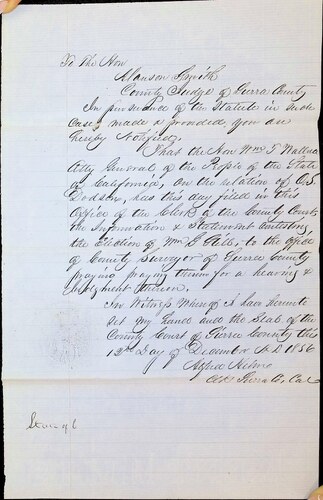 To The Hon
Alanson Smith
County Judge of Sierra County
In pursuance of the Statute in such
Case, made & provided you are
hereby Notified,
That the Hon Wm T Wallace
Atty General of the People of the State
of California, on the relation of
Dodson, has this day filed in this
Office of the Clerk of the County Court
the Information & Statement Contesting
the Election of Wm E to the office
of County Surveyor of Sierra County
praying praying therein for a hearing &
Judgment thereon.
In Witness Whereof I have hereunto
set my hand and the Seal of the
County Court of Sierra County this
12th Day of December A.D 1856
Alfred Helm
Clk Sierra Co, Cal